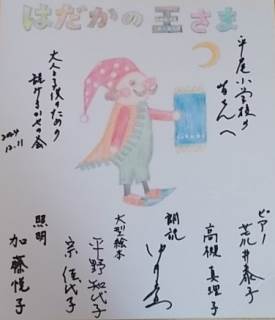 はだかの王さま
平尾小学校の
皆さんへ
大人と子供のための
読みきかせの会
2024
12.11
ピアノ
荒井泰子
高槻真理子
朗読
大型絵本
平野知代子
宗佳代子
照明
加藤悦子